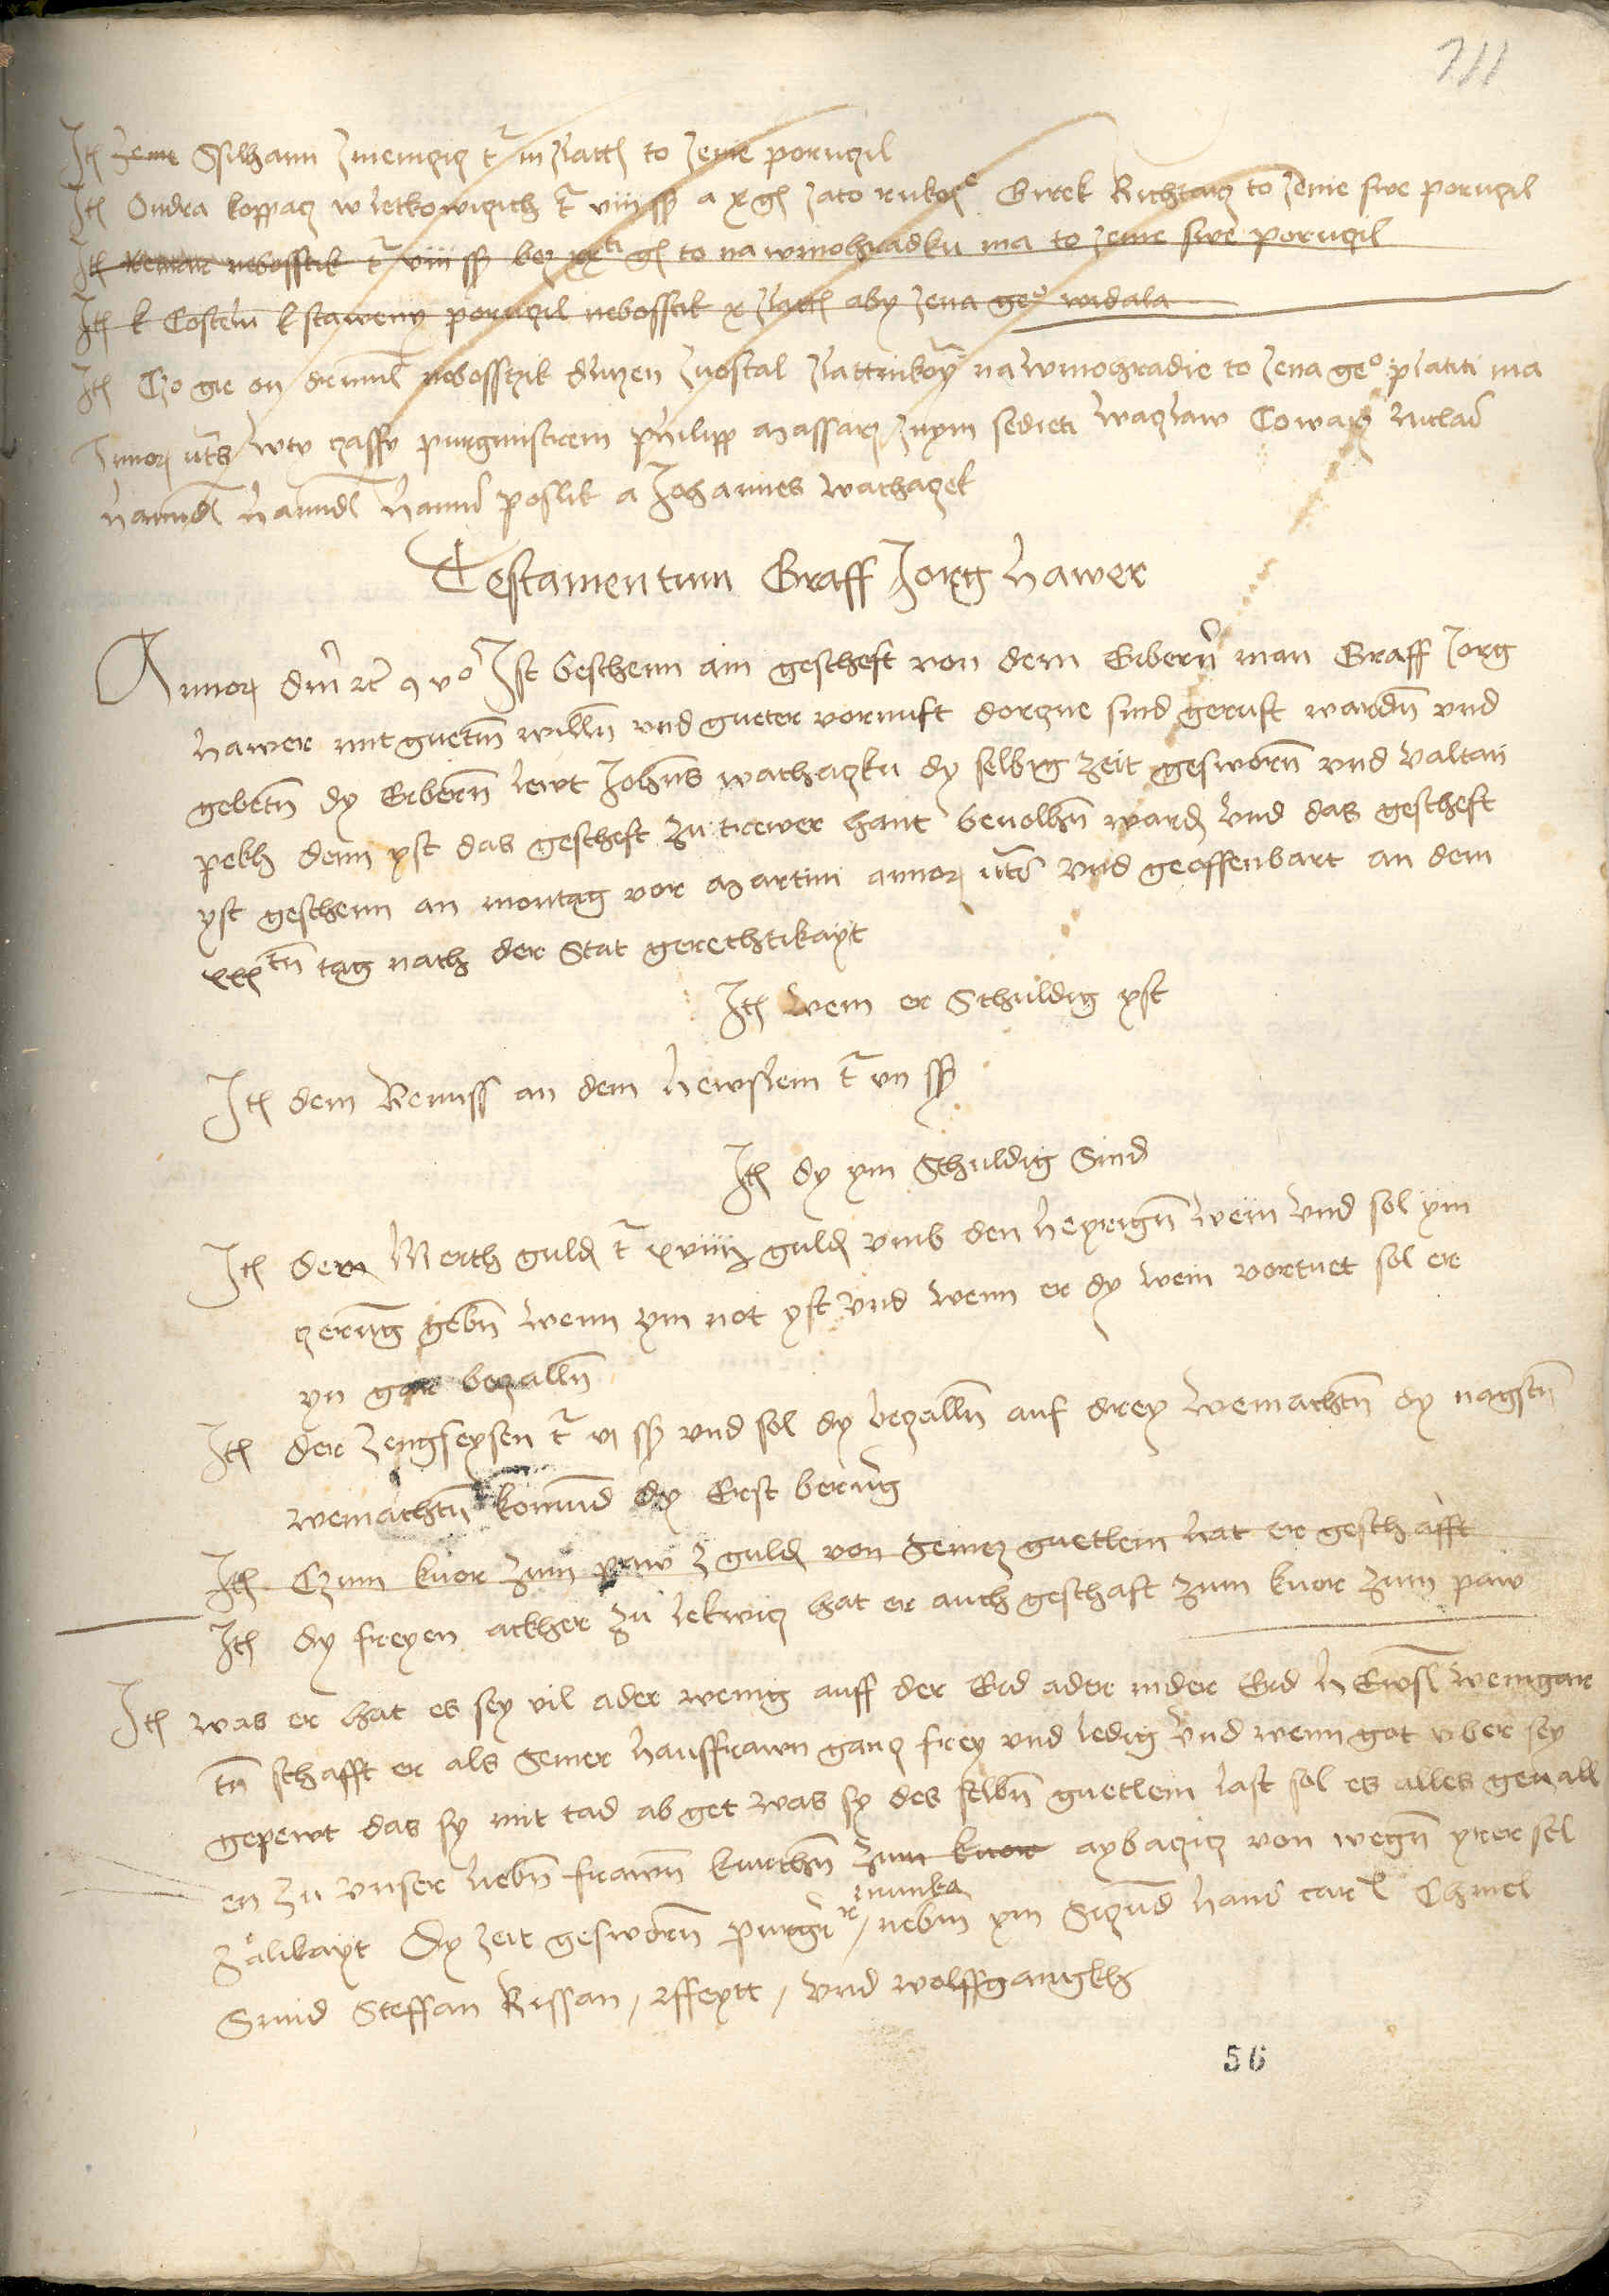 711
Itē żene Ssilhann Zmeiniziz t' iii zlattᷓ to zenie poruczil
Itē Ondra koppacz w letkowiczich t' viii ss a x gᷓ zato rukoy͏̈e Girek Richtarz to zenie swe poruczil
Itē nebosstik t' viii ss bez xxti gᷓ to na winohradku ma to zenie swe poruczil
Itē k Costelu k staweny poruczil nebosstik x zlattᷓ aby zena geo widala
Itē Czo gie on nebossczik dluzen zuostal na winohradie to zena geo platiti ma
Annorᷓ uts wtu czassu purgmistrem philipp massarz snym sedieti Waczlaw Cowarz Niclas
hanndl hanndl hanns poslik a Johannes wachaczek
Testamentum Graff Jorg hawer
Annorᷓ dm̄ rc͏̄ 9 vo Ist beschenn ain gescheft von dem Erbern̄ man Graff Jorg
hawer mit guetm̄ willn̄ vnd gueter vornuft dorczue sind geruft wardn̄ vnd
gebetn̄ dy Erbern̄ lewt John̄s wachaczku dy selbig zeit gesworn̄ vnd valtan
pekh denn yst das gescheft zu trewer hant beuolhn̄ ward vnd das gescheft
yst geschenn an montag vor martini annorᷓ uts vnd geoffenbart an dem
xxxtn̄ tag nach der Stat gerechtikayt
Itē wem er Schuldig yst
Itē dem Remiss an dem hewslein t' vii ss
Itē dy ym Schuldig Sind
Itē dem Merth guld t' xviiij guld vmb den heyrign̄ wein vnd sol ym
zerung gebn̄ wenn ym not yst vnd wenn er dy wein vortuet sol er
yn gar beczalln̄
Itē der Zengseysen t' vi ss vnd sol dy beczalln̄ auf drey weinachtn̄ dy nagstn̄
weinachtn̄ komund dy Erst berung
Itē Czum kuor zum paw z guld von Seinez guetlein hat er geschafft
Itē dy freyen ackher zu lekwicz hat er auch geschaft zum kuor zum paw
Itē was er hat es sey vil ader wenig auff der Erd ader inder Erd hewsl weingar
tn̄ schafft er als Seiner hausfrawn gancz frey vnd ledig vnd wenn got vber sey
gepewt das sy mit tad ab get was sy des selbn̄ guetlein last sol es alles geuall
en zu vnser liebn̄ frawn̄ kirchn̄ zum kuor aybacziz von wegn̄ yrer sel
zalikayt Dy zeit gesworn̄ purgr̄ munka nebm̄ ym Sigmūd hans carl Chmel
Smid Steffan Rissan / Affeytt / vnd wolffgangkh
56